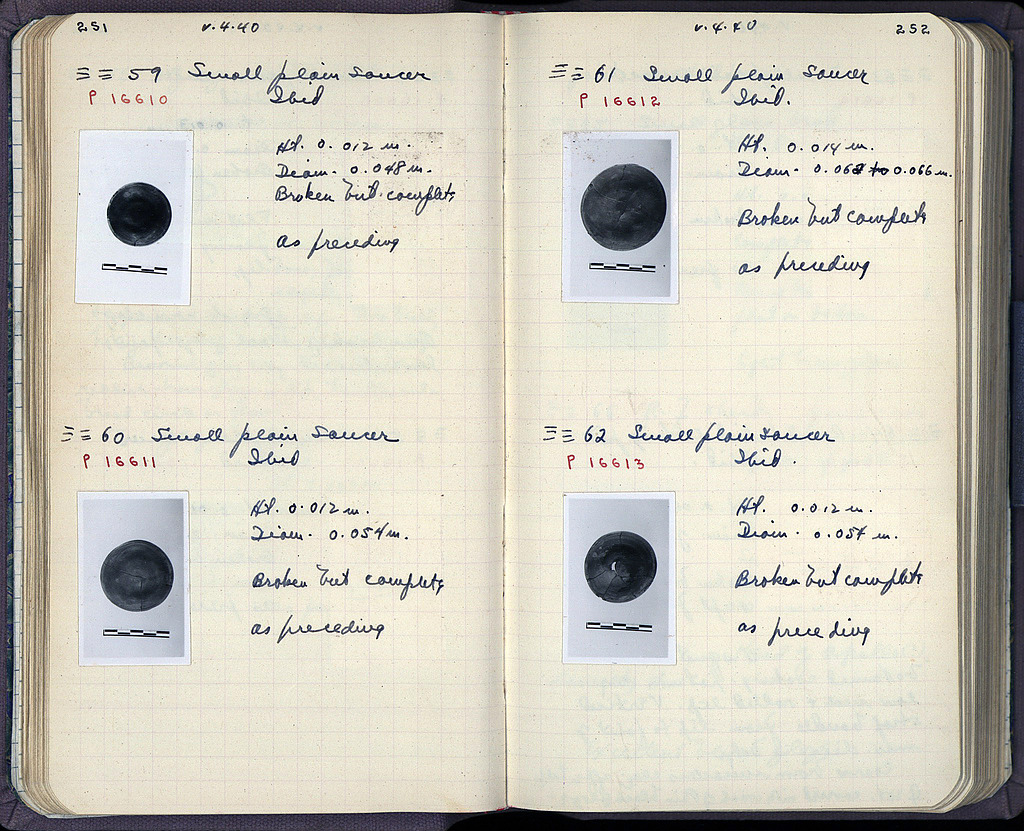 251 v.4.40
ΞΞ 59 Small plain saucer
P 16610 Ibid
Ht. 0.012 m.
Diam. 0.048 m.
Broken but complete
as preceding
ΞΞ 60 Small plain saucer
P 16611 Ibid
Ht. 0.012 m.
Diam. 0.054 m.
Broken but complete
as preceding
v.4.40 252
ΞΞ 61 Small plain saucer
P 16612 Ibid.
Ht. 0.014 m.
Diam. to 0.066 m.
Broken but complete
as preceding
ΞΞ 62 Small plain saucer
P 16613 Ibid.
Ht. 0.012 m.
Diam. 0.054 m.
Broken but complete
as preceding